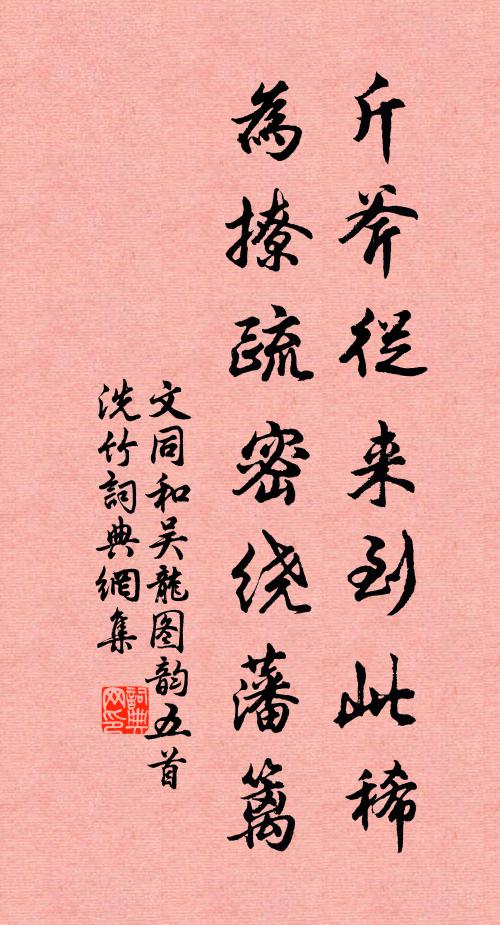 斤斧從来到此稀
為撩疏密绕藩篱
文同和吴龍图韵五首
洗竹詞典網集
詞典网印